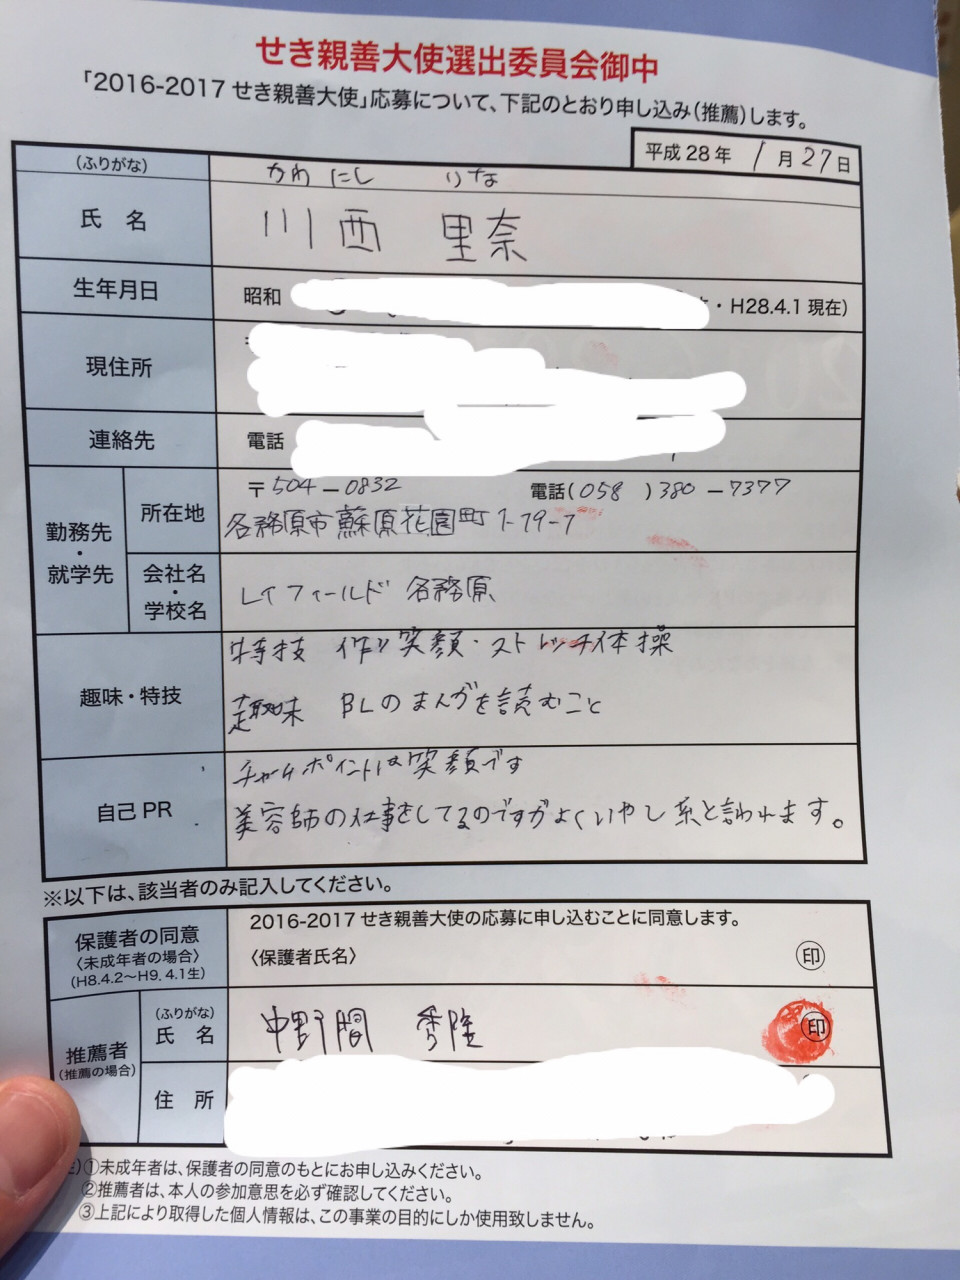 せき親善大使選出委員会御中
「2016-2017 せき親善大使」応募について、下記のとおり申し込み(推薦)します。
平成28年 1月27日
(ふりがな) かわにし りな
氏 名 川西 里奈
生年月日 昭和 ・H28.4.1 現在)
現住所
連絡先 電話
勤務先・就学先
所在地 〒504-0832 電話(058)380-7377
各務原市蘇原花園町1-79-7
会社名・学校名 レイフィールド 各務原
趣味・特技 特技 作り笑顔・ストレッチ体操
趣味 BLのまんがを読むこと
自己PR チャームポイントは笑顔です
美容師の仕事をしてるのですがよくいやし系と言われます。
※以下は、該当者のみ記入してください。
保護者の同意
〈未成年者の場合〉
(H8.4.2〜H9.4.1生)
2016-2017 せき親善大使の応募に申し込むことに同意します。
〈保護者氏名〉 印
推薦者
(推薦の場合)
(ふりがな)
氏 名 中野間 秀隆 印
住 所
①未成年者は、保護者の同意のもとにお申し込みください。
②推薦者は、本人の参加意思を必ず確認してください。
③上記により取得した個人情報は、この事業の目的にしか使用致しません。